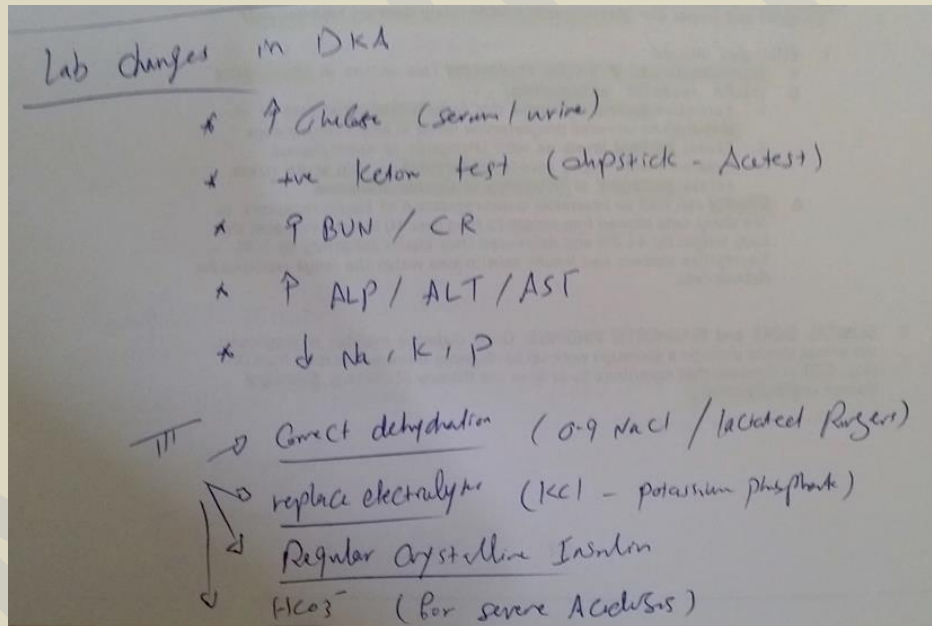 Lab changes in DKA
* ↑ Glucose (serum / urine)
* +ve Keton test (dipstick - Acetest)
* ↑ BUN / CR
* ↑ ALP / ALT / AST
* ↓ Na, K, P
TTT → Correct dehydration (0.9 NaCl / lactated Ringers)
→ replace electrolyte (KCl - potassium phosphate)
→ Regular Crystalline Insulin
→ HCO3⁻ (for severe Acidosis)